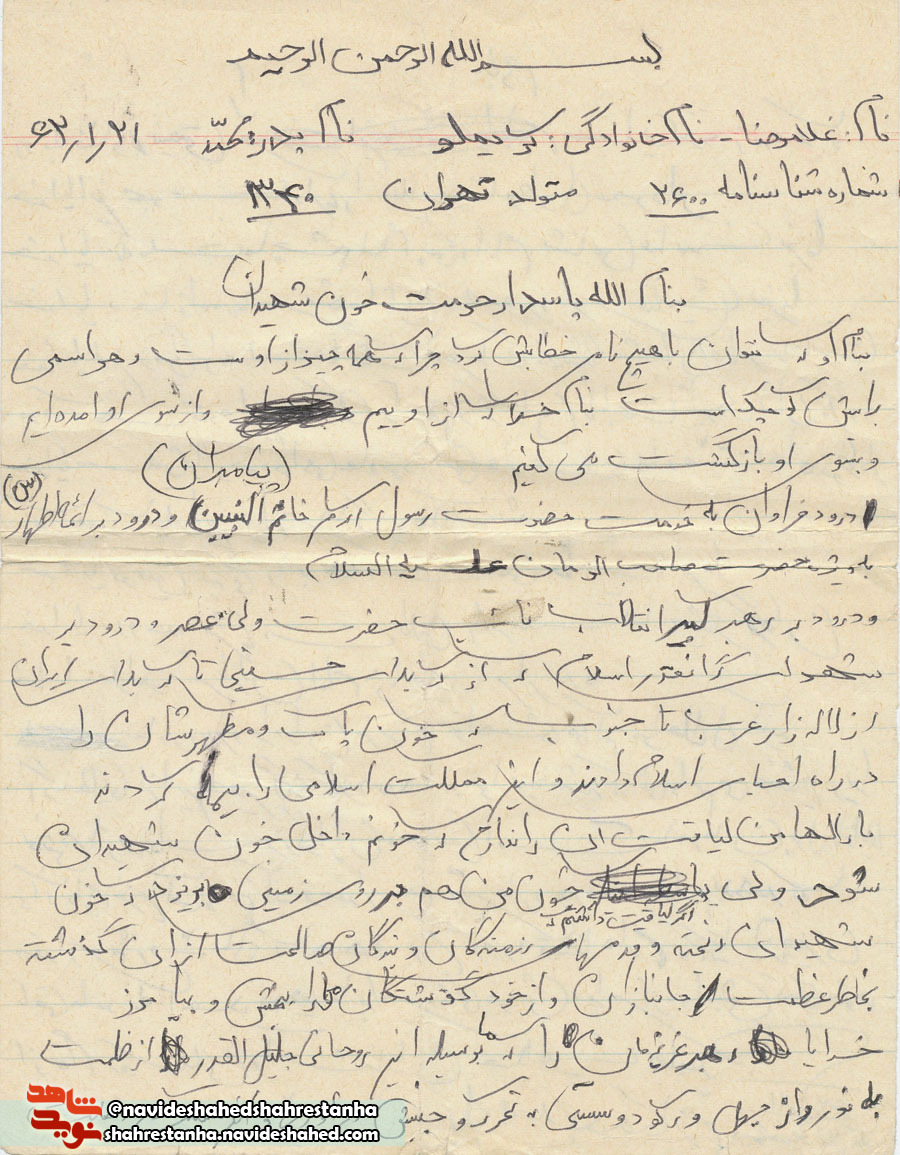 بسم الله الرحمن الرحیم
نام: غلامرضا - نام خانوادگی: کریملو نام پدر: محمد ۶۳/۱/۳۱
شماره شناسنامه ۲۶۰۰ متولد تهران ۱۳۴۰
بنام الله پاسدار حرمت خون شهیدان
بنام او که نتوان با هیچ نامی خطابش کرد چرا که همه چیز از اوست و هر اسمی
برایش کوچک است بنام خدا که از اوییم و از سوی او آمده ایم
و بسوی او بازگشت می کنیم
(پیامبران) (س)
درود فراوان به خدمت حضرت رسول اکرم خاتم النبیین و درود بر ائمه اطهار
به ویژه حضرت صاحب الزمان علیه السلام
و درود بر رهبر کبیر انقلاب نائب حضرت ولی عصر و درود بر
شهدای گرانقدر اسلام از کربلای حسینی تا کربلای ایران
از لاله زار غرب تا جنوب که خون پاک و مطهرشان را
در راه احیای اسلام دادند و این مملکت اسلامی را بیمه کردند
بارالها من لیاقت این را ندارم که خونم داخل خون شهیدان
شود ولی خون من هم بر روی زمین بریز که خون
اگر لیاقت داشتم
شهیدان ریخته و قدمهای رزمندگان و بندگان صالحت از آن گذشته
بخاطر عظمت جانبازان و از خود گذشتگان مرا ببخش و بیامرز
خدایا رهبر عزیزمان را که بوسیله این روحانی جلیل القدر از ظلمت
به نور و از جهل و رکود و سستی به تحرک و جنبش
شاهد
نوید
@navideshahedshahrestanha
shahrestanha.navideshahed.com